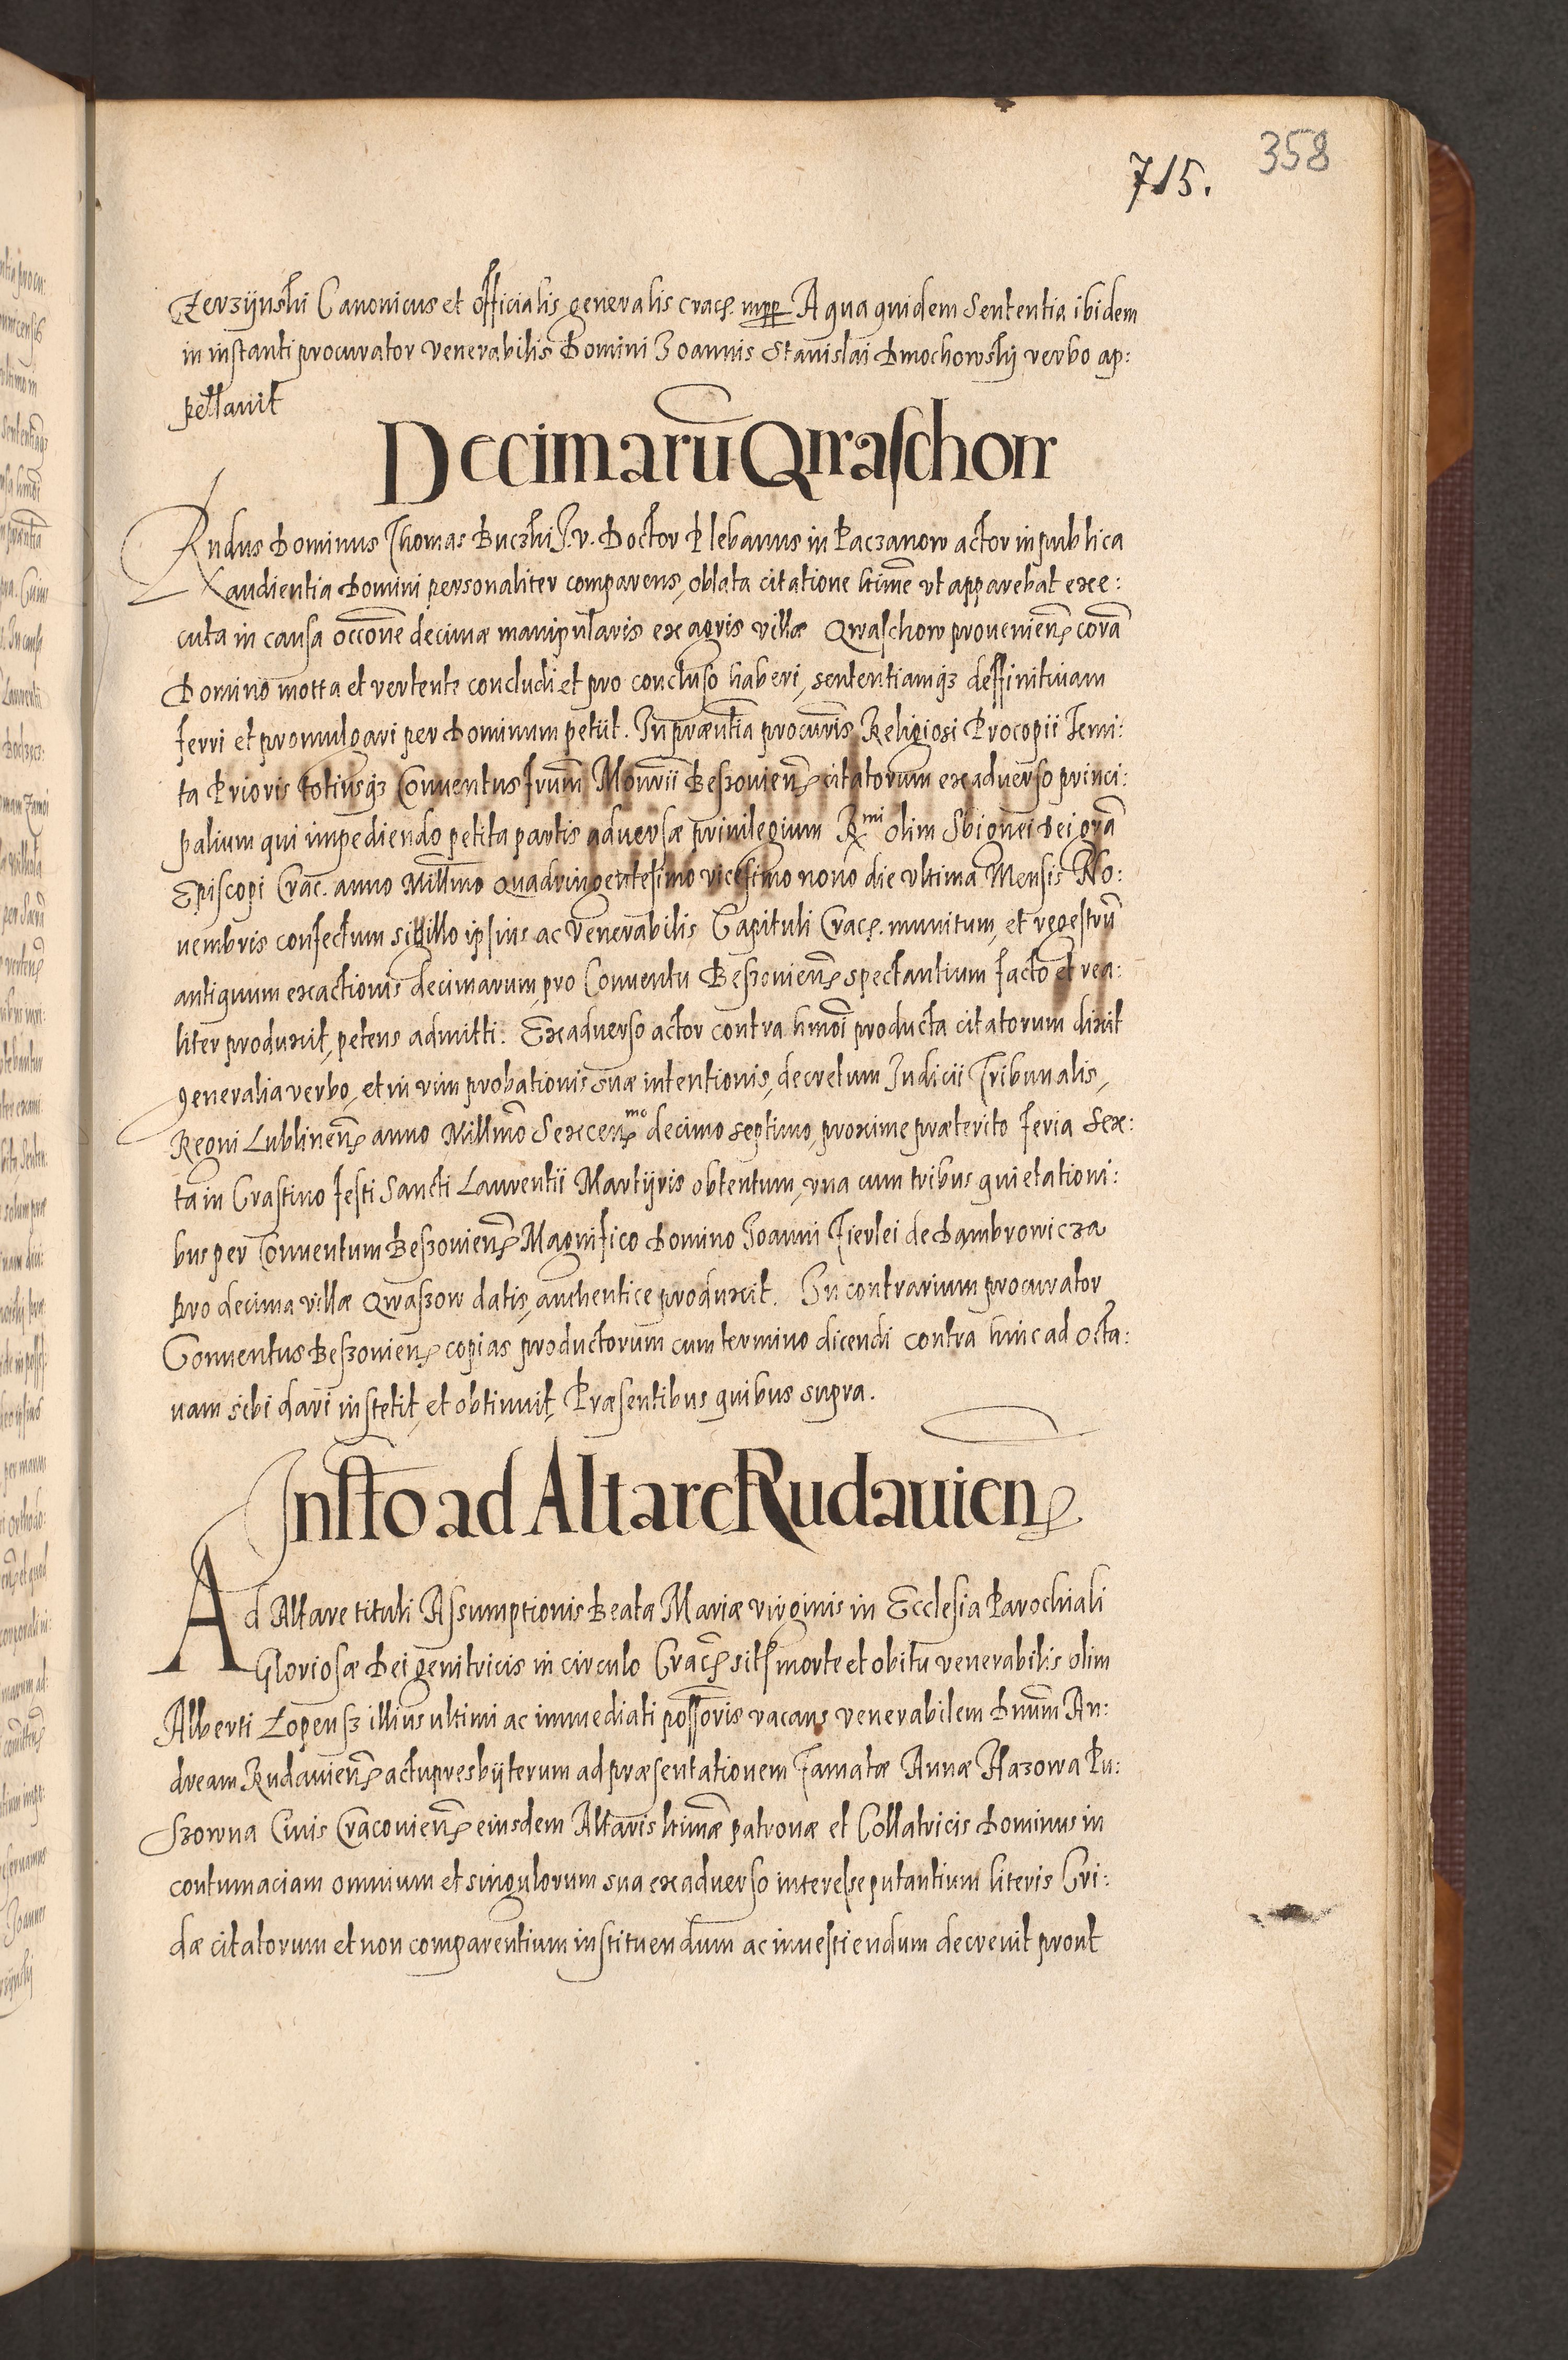 358
715.
Zerzÿnski Canonicus et officialis generalis cracₑ. mpp A qua quidem Sententia ibidem
in instanti procurator venerabilis Domini Joannis Stanislai Dmochowskij verbo ap:
pellauit
Decimarū Qwaschow
Rndus Dominus Thomas Buczki J. v. Doctor Plebanus in Paczanow actor in publica
audientia Domini personaliter comparens, oblata citatione ltime vt apparebat exe:
cuta in causa occone decimæ manipularis ex agris villæ Qwaschow prouenienₑ corā
Domino mota et vertente concludi et pro concluso haberi, sententiamqȝ deffinitiuam
ferri et promulgari per Dominum petiit. In præntia procuris Religiosi Procopii
ta Prioris totiusqȝ Conuentus frum Monrii Beszouienₑ citatorum ex aduerso princi:
palium qui impediendo petita partis aduersæ priuilegium Rmi olim Sbignei dei gra
Episcopi Crac. anno Millmo quadringentesimo vicesimo nono die vltima Mensis No:
uembris confectum sigillo ipsius ac Venerabilis Capituli Cracₑ. munitum, et regestrū
antiquum exactionis decimarum, pro Conuentu Beszouienₑ spectantium facto et rea:
liter produxit, petens admitti. Ex aduerso actor contra hmoi producta citatorum dixit
generalia verbo, et in vim probationis suæ intentionis, decretum Judicii Tribunalis,
Regni Lublinenₑ anno Millmo Sexcenₑmo decimo septimo, proxime præterito feria Sex:
ta in Crastino festi Sancti Laurentii Martÿris obtentum, vna cum tribus quietationi:
bus per Conuentum Beszouienₑ Magnifico Domino Joanni Fierlei de Dambrowicza
pro decima villæ Qwaszow datis, authentice produxit. In contrarium procurator
Conuentus Beszouienₑ copias productorum cum termino dicendi contra hinc ad octa:
uam sibi dari institit, et obtinuit, Præsentibus quibus supra.
Instto ad Altare Rudauienₑ
Ad Altare tituli Assumptionis Beatæ Mariæ virginis in Ecclesia Parochiali
Gloriosæ Dei genitricis in circulo Cracₑ sitₑ morte et obitu venerabilis olim
Alberti Lopensz illius ultimi ac immediati possoris vacans venerabilem Dnum An:
dream Rudauienₑ actu presbÿterum ad præsentationem Famatæ Annæ Hazowa Pu:
szowna Ciuis Cracouienₑ eiusdem Altaris ltimæ patronæ et Collatricis Dominus in
contumaciam omnium et singulorum sua ex aduerso interesse putantium literis Cri:
dæ citatorum et non comparentium instituendum ac inuestiendum decreuit prout